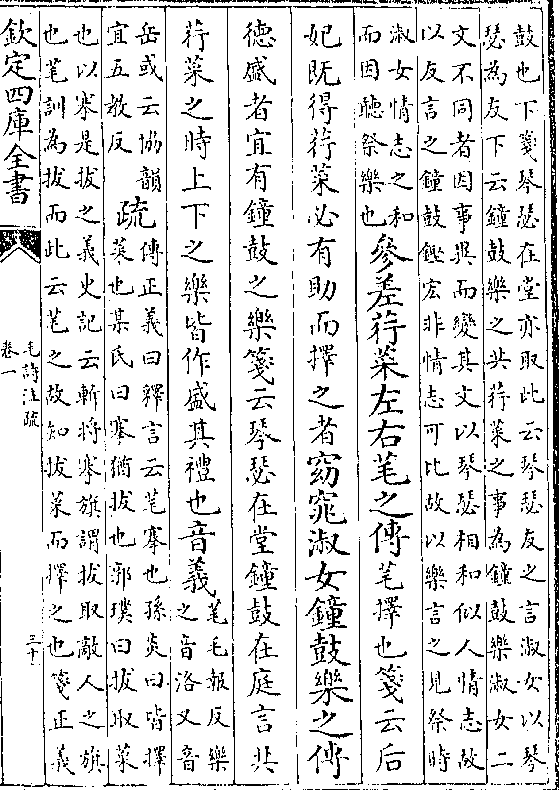 鼓也下箋琴瑟在堂亦取此云琴瑟友之言淑女以琴
瑟為友下云鐘鼓樂之共荇菜之事為鐘鼓樂淑女二
文不同者因事異而變其文以琴瑟相和似人情志故
以友言之鐘鼓鏗宏非情志可比故以樂言之見祭時
淑女情志之和
而因聽祭樂也
參差荇菜左右芼之傳芼擇也箋云后
妃既得荇菜必有助而擇之者窈窕淑女鐘鼓樂之傳
德盛者宜有鐘鼓之樂箋云琴瑟在堂鐘鼓在庭言共
荇菜之時上下之樂皆作盛其禮也音義
芼毛報反樂
之音洛又音
岳或云協韻
宜五教反
疏
傳正義曰釋言云芼搴也孫炎曰皆擇
菜也某氏曰搴猶拔也郭璞曰拔取菜
也以搴是拔之義史記云斬將搴旗謂拔取敵人之旗
也芼訓為拔而此云芼之故知拔菜而擇之也箋正義
欽定四庫全書
毛詩注疏
卷一
三十